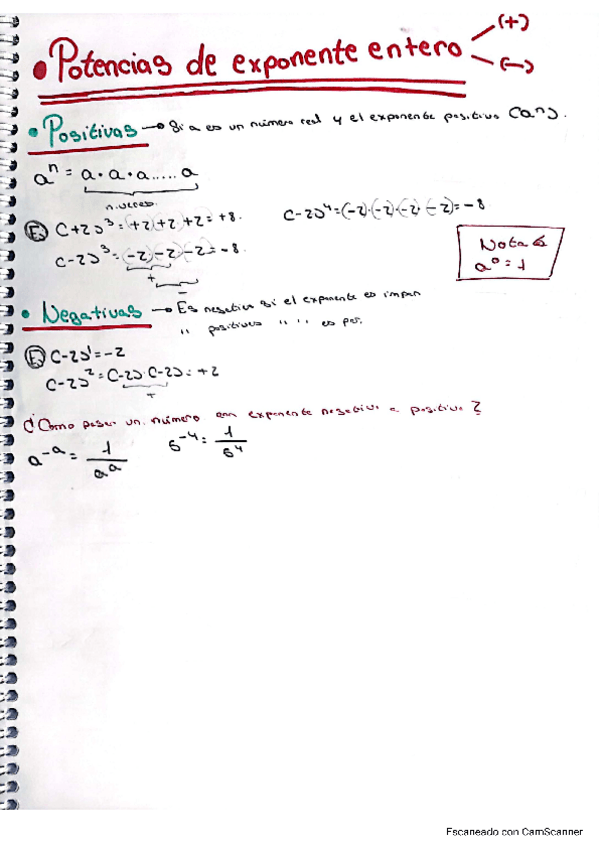 • Potencias de exponente entero (+)
(-)
• Positivas → Si a es un número real y el exponente positivo (an).
aⁿ = a · a · a ..... a
n veces.
Ej (+2)³ = (+2)(+2)(+2) = +8. (-2)⁴ = (-2)·(-2)·(-2)·(-2) = -8
(-2)³ = (-2)(-2)(-2) = -8.
+
-
Nota:
a⁰ = 1
• Negativas → Es negativo si el exponente es impar
" positivos " " es par.
Ej (-2)¹ = -2
(-2)² = (-2)·(-2) = +2
+
¿Como pasar un número con exponente negativo a positivo?
a⁻ᵃ = 1/aᵃ 6⁻⁴ = 1/6⁴
Escaneado con CamScanner